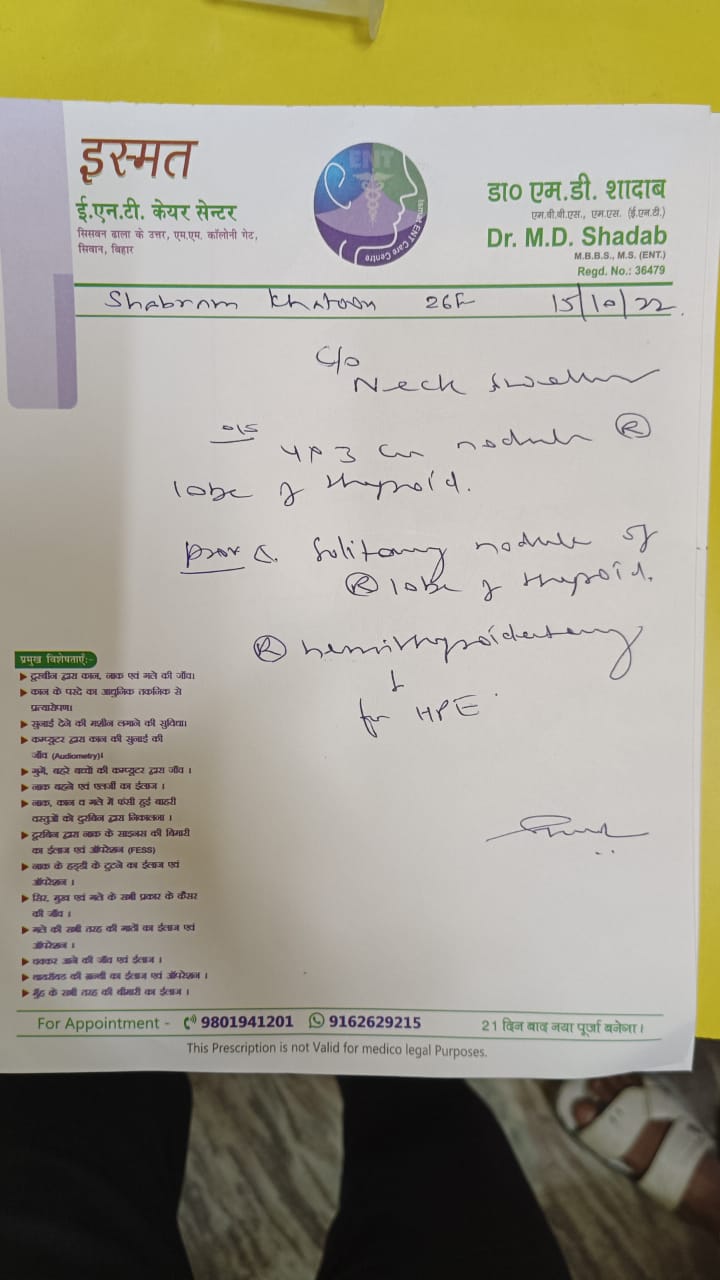 इस्मत
ई.एन.टी. केयर सेन्टर
सिसवन ढाला के उत्तर, एम.एम. कॉलोनी गेट,
सिवान, बिहार
ENT
Ismat ENT Care Centre
डा० एम.डी. शादाब
एम.बी.बी.एस., एम.एस. (ई.एन.टी.)
Dr. M.D. Shadab
M.B.B.S., M.S. (ENT.)
Regd. No.: 36479
Shabnam Khatoon 26F 15/10/22
C/o
Neck swelling
O/E
4x3 cm nodule (R)
lobe of thyroid.
Solitary nodule of
(R) lobe of thyroid.
(R) hemithyroidectomy
↓
for HPE
प्रमुख विशेषताएँ:-
दूरबीन द्वारा कान, नाक एवं गले की जाँच।
कान के परदे का आधुनिक तकनिक से
प्रत्यारोपण।
सुनाई देने की मशीन लगाने की सुविधा।
कम्प्यूटर द्वारा कान की सुनाई की
जाँच (Audiometry)।
गुगें, बहरे बच्चों की कम्प्यूटर द्वारा जाँच ।
नाक बहने एवं एलर्जी का ईलाज ।
नाक, कान व गले में फंसी हुई बाहरी
वस्तुओं को दुरबिन द्वारा निकालना ।
दुरबिन द्वारा नाक के साइनस की बिमारी
का ईलाज एवं ऑपरेशन (FESS)
नाक के हड्डी के टुटने का ईलाज एवं
ऑपरेशन ।
सिर, मुख एवं गले के सभी प्रकार के कैंसर
की जाँच ।
गले की सभी तरह की गाठों का ईलाज एवं
ऑपरेशन ।
चक्कर आने की जाँच एवं ईलाज ।
थायरॉयड की ग्रन्थी का ईलाज एवं ऑपरेशन ।
मुँह के सभी तरह की बीमारी का ईलाज ।
For Appointment - 9801941201 9162629215
21 दिन बाद नया पूर्जा बनेगा ।
This Prescription is not Valid for medico legal Purposes.